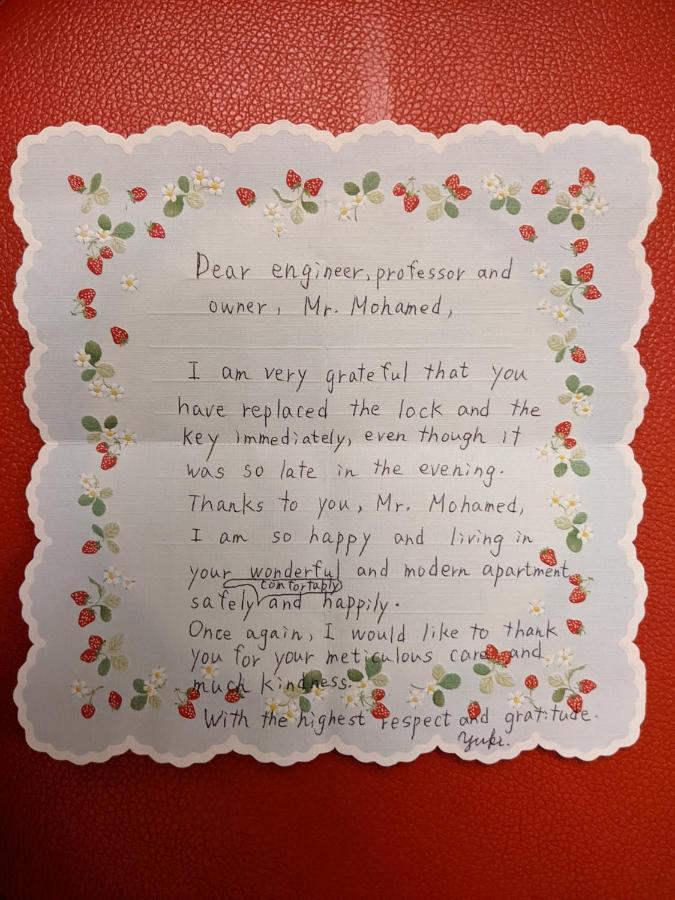 Dear engineer, professor and
owner, Mr. Mohamed,
I am very grateful that you
have replaced the lock and the
key immediately, even though it
was so late in the evening.
Thanks to you, Mr. Mohamed,
I am so happy and living in
your wonderful and modern apartment
comfortably
safely and happily.
Once again, I would like to thank
you for your meticulous care and
much kindness.
With the highest respect and gratitude.
Yuki.